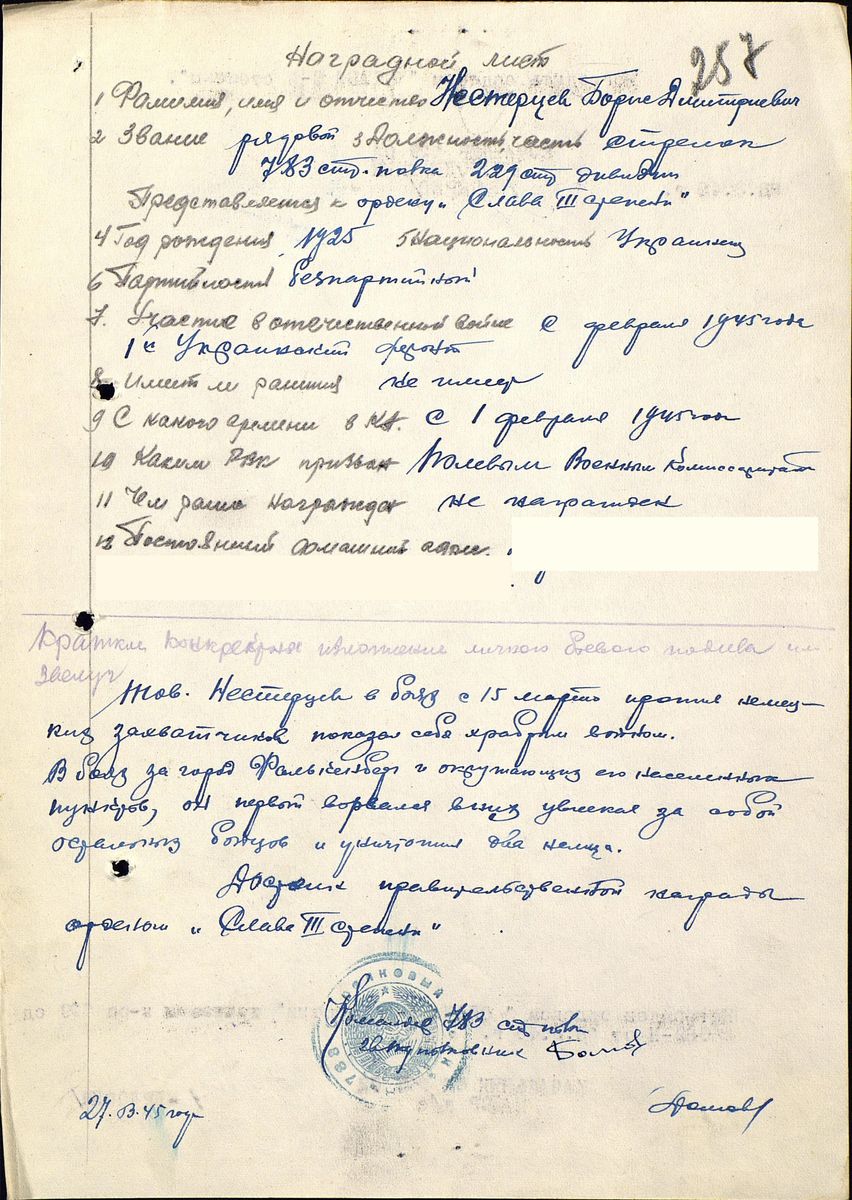 Наградной лист
257
1 Фамилия, имя и отчество Нестерцев Борис Дмитриевич
2 Звание рядовой 3 Должность, часть стрелок
783 стр. полка 229 стр дивизии
Представляется к ордену „Слава III степени"
4 Год рождения 1925 5 Национальность Украинец
6 Партийность беспартийный
7. Участие в отечественной войне с февраля 1945 года
1й Украинский фронт
8 Имеет ли ранения не имеет
9 С какого времени в КА. С 1 февраля 1945 года
10 Каким РВК призван Полевым Военным Комиссариатом
11 Чем ранее награжден не награжден
12 Постоянный домашний адрес.
Краткое конкретное изложение личного боевого подвига или
Тов. Нестерцев в боях с 15 марта против немец-
ких захватчиков показал себя храбрым воином.
В боях за город Фалькенберг и окружающих его населенных
пунктов, он первый ворвался в них увлекая за собой
остальных бойцов и уничтожил два немца.
Достоин правительственной награды
орденом „Слава III степени"
Командир 783 стр полка
подполковник
27.3.45 года